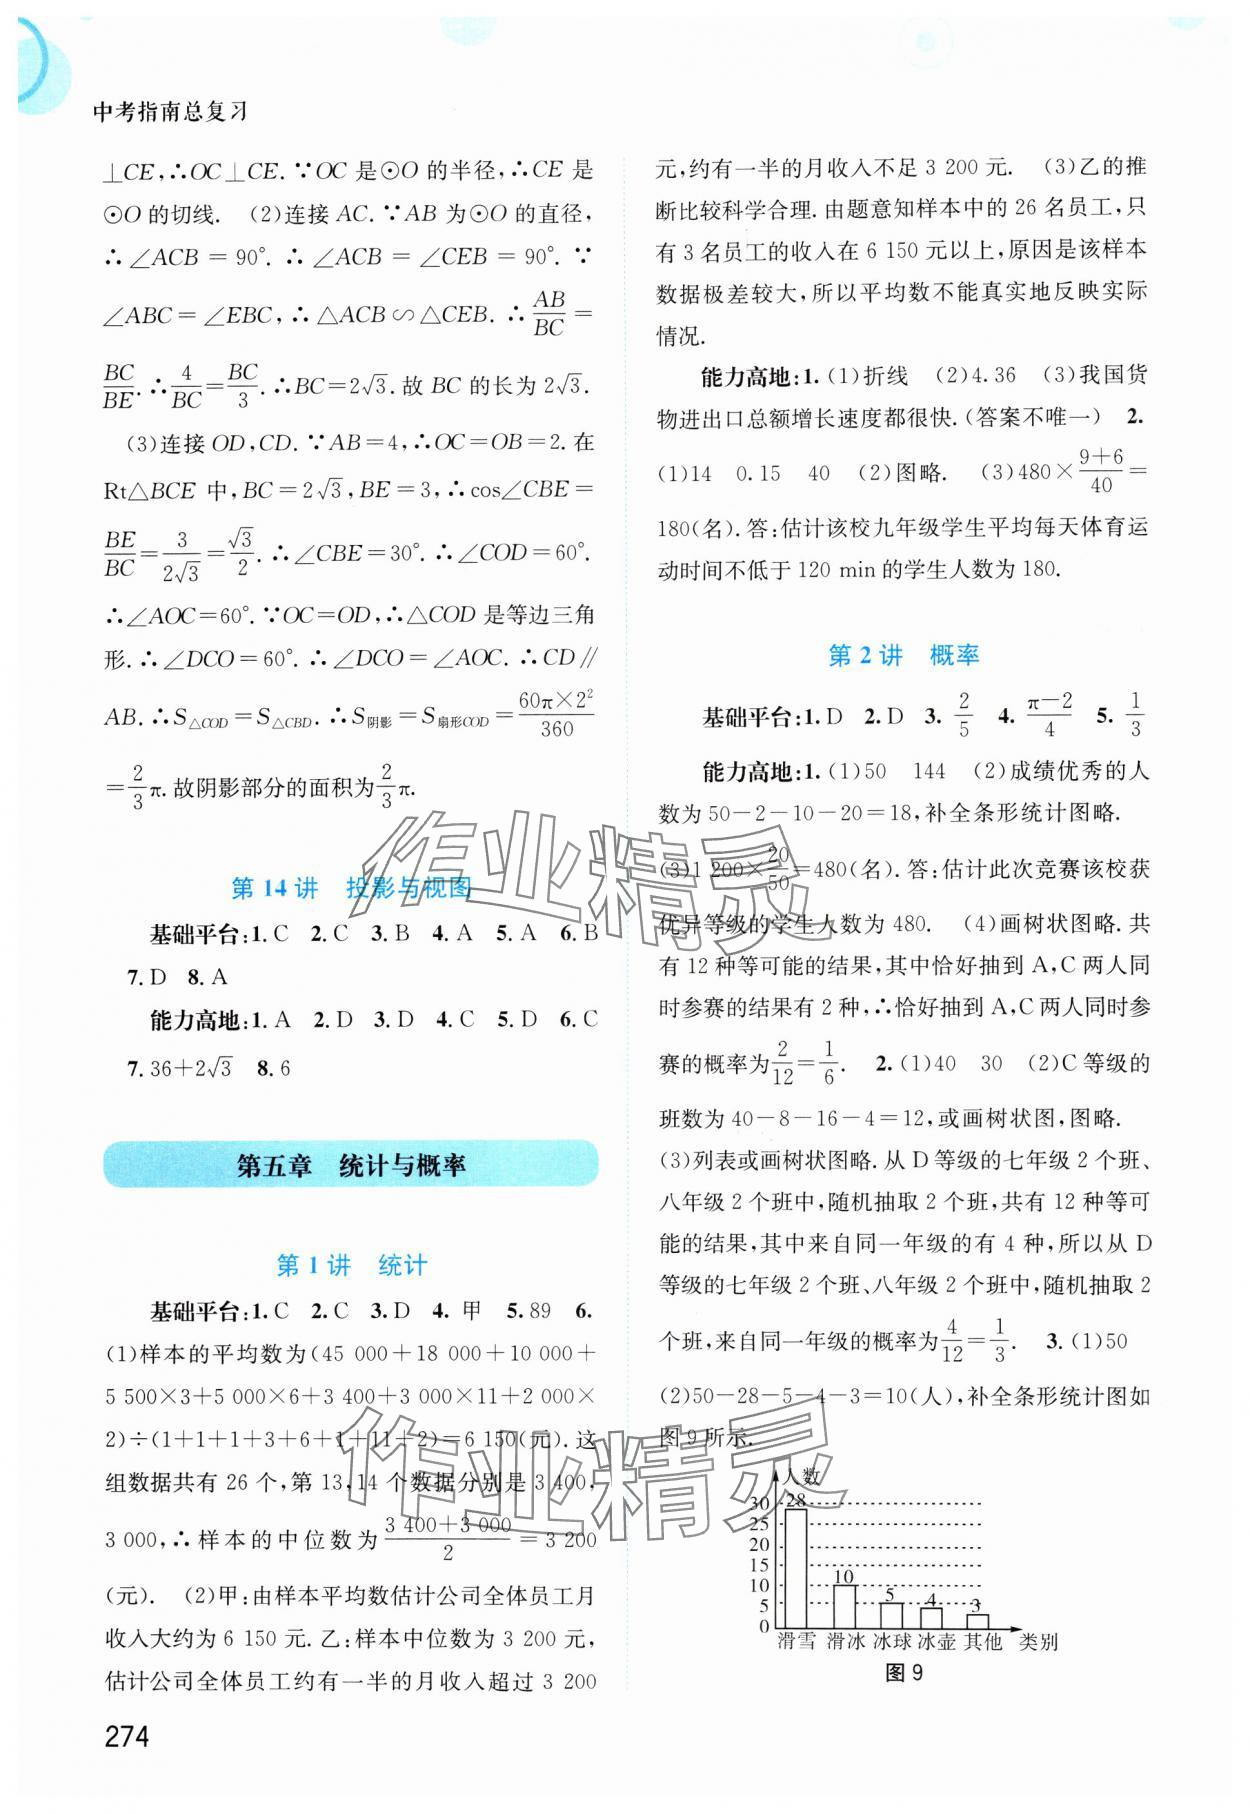 中考指南总复习
⊥CE,∴OC⊥CE.∵OC 是⊙O 的半径,∴CE 是
⊙O 的切线. (2)连接 AC.∵AB 为⊙O 的直径,
∴∠ACB = 90°. ∴∠ACB = ∠CEB = 90°. ∵
∠ABC = ∠EBC, ∴ △ACB ∽ △CEB. ∴ AB/BC =
BC/BE. ∴ 4/BC = BC/3. ∴BC=2√3. 故 BC 的长为 2√3.
(3)连接 OD,CD.∵AB=4,∴OC=OB=2. 在
Rt△BCE 中, BC=2√3, BE=3, ∴cos∠CBE=
BE/BC = 3/(2√3) = √3/2. ∴∠CBE=30°. ∴∠COD=60°.
∴∠AOC=60°. ∵OC=OD, ∴△COD 是等边三角
形. ∴∠DCO=60°. ∴∠DCO=∠AOC. ∴CD∥
AB. ∴S△COD=S△CBD. ∴S阴影=S扇形COD= (60π×2²)/360
= 2/3 π. 故阴影部分的面积为 2/3 π.
第 14 讲 投影与视图
基础平台:1. C 2. C 3. B 4. A 5. A 6. B
7. D 8. A
能力高地:1. A 2. D 3. D 4. C 5. D 6. C
7. 36+2√3 8. 6
第五章 统计与概率
第 1 讲 统计
基础平台:1. C 2. C 3. D 4. 甲 5. 89 6.
(1)样本的平均数为(45 000+18 000+10 000+
5 500×3+5 000×6+3 400+3 000×11+2 000×
2)÷(1+1+1+3+6+1+11+2)=6 150(元). 这
组数据共有 26 个, 第 13,14 个数据分别是 3 400,
3 000, ∴ 样本的中位数为 (3 400+3 000)/2 = 3 200
(元). (2)甲:由样本平均数估计公司全体员工月
收入大约为 6 150 元. 乙:样本中位数为 3 200 元,
估计公司全体员工约有一半的月收入超过 3 200
274
元,约有一半的月收入不足 3 200 元. (3)乙的推
断比较科学合理. 由题意知样本中的 26 名员工,只
有 3 名员工的收入在 6 150 元以上,原因是该样本
数据极差较大,所以平均数不能真实地反映实际
情况.
能力高地:1. (1)折线 (2)4.36 (3)我国货
物进出口总额增长速度都很快.(答案不唯一) 2.
(1)14 0.15 40 (2)图略. (3)480× (9+6)/40 =
180(名). 答:估计该校九年级学生平均每天体育运
动时间不低于 120 min 的学生人数为 180.
第 2 讲 概率
基础平台:1. D 2. D 3. 2/5 4. (π-2)/4 5. 1/3
能力高地:1. (1)50 144 (2)成绩优秀的人
数为 50-2-10-20=18,补全条形统计图略.
(3)1 200× 20/50 =480(名). 答:估计此次竞赛该校获
优异等级的学生人数为 480. (4)画树状图略. 共
有 12 种等可能的结果,其中恰好抽到 A,C 两人同
时参赛的结果有 2 种,∴恰好抽到 A,C 两人同时参
赛的概率为 2/12 = 1/6. 2. (1)40 30 (2)C 等级的
班数为 40-8-16-4=12,或画树状图,图略.
(3)列表或画树状图略. 从 D 等级的七年级 2 个班、
八年级 2 个班中,随机抽取 2 个班,共有 12 种等可
能的结果,其中来自同一年级的有 4 种,所以从 D
等级的七年级 2 个班、八年级 2 个班中,随机抽取 2
个班,来自同一年级的概率为 4/12 = 1/3. 3. (1)50
(2)50-28-5-4-3=10(人),补全条形统计图如
图 9 所示.
人数
30 28
25
20
15
10 10
5 5 4 3
0
滑雪 滑冰 冰球 冰壶 其他 类别
图 9
作业精灵
作业精灵